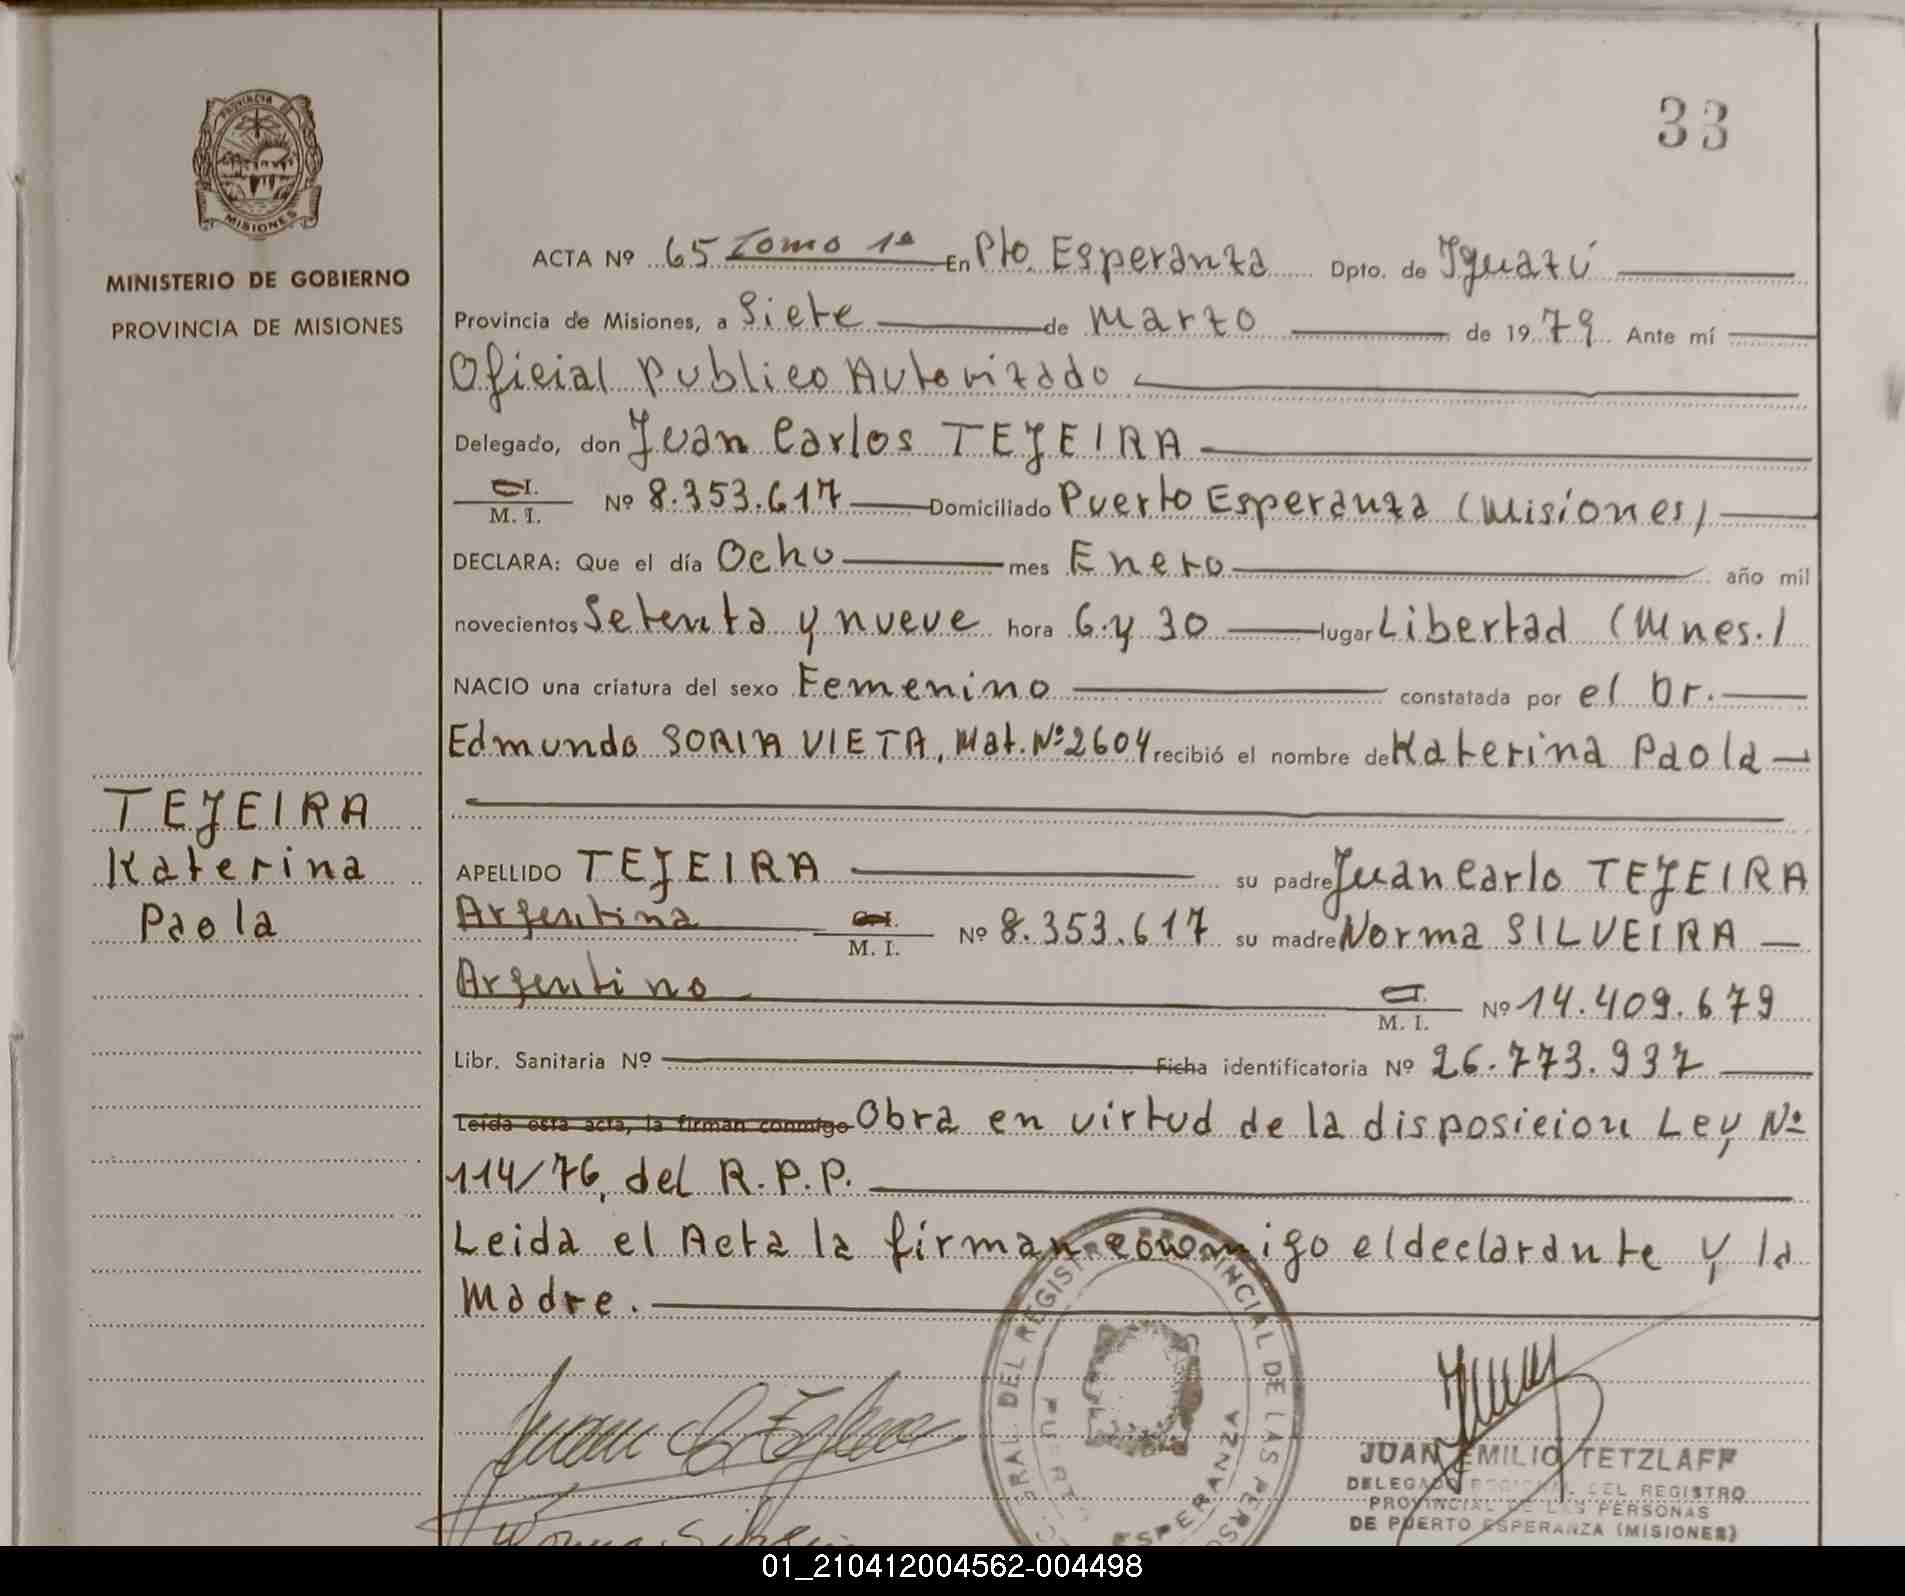 33
PROVINCIA DE
MISIONES
MINISTERIO DE GOBIERNO
PROVINCIA DE MISIONES
TEJEIRA
Katerina
Paola
ACTA Nº 65 Tomo 1º En Pto. Esperanza Dpto. de Iguazú
Provincia de Misiones, a Siete de Marzo de 1979. Ante mí
Oficial Publico Autorizado
Delegado, don Juan Carlos TEJEIRA
C.I. M. I. Nº 8.353.617 Domiciliado Puerto Esperanza (Misiones)
DECLARA: Que el día Ocho mes Enero año mil
novecientos Setenta y nueve hora 6 y 30 lugar Libertad (Mnes.)
NACIO una criatura del sexo Femenino constatada por el Dr.
Edmundo SORIA VIETA, Mat. Nº 2604 recibió el nombre de Katerina Paola
APELLIDO TEJEIRA su padre Juan Carlo TEJEIRA
Argentina C.I. M. I. Nº 8.353.617 su madre Norma SILVEIRA
Argentino C.I. M. I. Nº 14.409.679
Libr. Sanitaria Nº Ficha identificatoria Nº 26.773.937
Leída esta acta, la firman conmigo Obra en virtud de la disposicion Ley Nº
114/76, del R.P.P.
Leida el Acta la firman conomigo el declarante y la
Madre.
DEL REGISTRO PROVINCIAL DE LAS PERSO
PUERTO ESPERANZA
JUAN EMILIO TETZLAFF
DELEGADO REGIONAL DEL REGISTRO
PROVINCIAL DE LAS PERSONAS
DE PUERTO ESPERANZA (MISIONES)
01_210412004562-004498